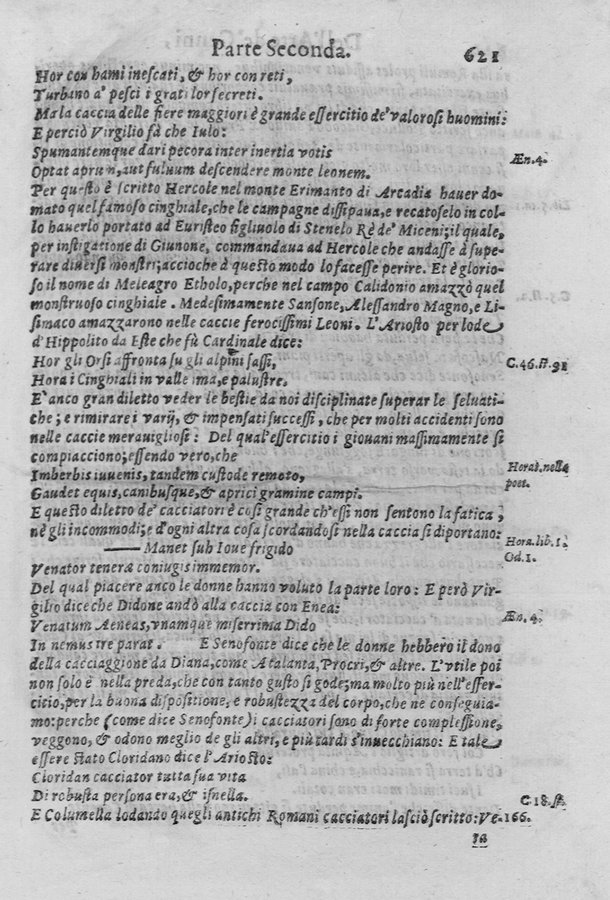 Parte Seconda. 621
Hor con hami inescati, & hor con reti,
Turbano a' pesci i grati lor secreti.
Ma la caccia delle fiere maggiori è grande essercitio de' valorosi huomini:
E perciò Virgilio fà che Iulo:
Spumantemque dari pecora inter inertia votis Æn. 4.
Optat aprum, aut fuluum descendere monte leonem.
Per questo è scritto Hercole nel monte Erimanto di Arcadia hauer do-
mato quel famoso cinghiale, che le campagne dissipaua, e recatoselo in col-
lo hauerlo portato ad Euristeo figliuolo di Stenelo Rè de' Miceni; il quale,
per instigatione di Giunone, commandaua ad Hercole che andasse à supe-
rare diuersi monstri; accioche à questo modo lo facesse perire. Et è glorio-
so il nome di Meleagro Etholo, perche nel campo Calidonio amazzò quel
monstruoso cinghiale. Medesimamente Sansone, Alessandro Magno, e Li-
simaco amazzarono nelle caccie ferocissimi Leoni. L'Ariosto per lode
d'Hippolito da Este che fù Cardinale dice:
Hor gli Orsi affronta su gli alpini sassi, C. 46. st. 91
Hora i Cinghiali in valle ima, e palustre.
E' anco gran diletto veder le bestie da noi disciplinate superar le seluati-
che; e rimirare i varij, & impensati successi, che per molti accidenti sono
nelle caccie merauigliosi: Del qual'essercitio i giouani massimamente si
compiacciono; essendo vero, che
Imberbis iuuenis, tandem custode remoto, Horat. nella
Gaudet equis, canibusque, & aprici gramine campi. poet.
E questo diletto de' cacciatori è cosi grande ch'essi non sentono la fatica,
nè gli incommodi; e d'ogni altra cosa scordandosi nella caccia si diportano:
—— Manet sub Ioue frigido Hora. lib. 1.
Venator teneræ coniugis immemor. Od. 1.
Del qual piacere anco le donne hanno voluto la parte loro: E però Vir-
gilio dice che Didone andò alla caccia con Enea:
Venatum Aeneas, vnamque miserrima Dido Æn. 4.
In nemus ire parat. E Senofonte dice che le donne hebbero il dono
della cacciaggione da Diana, come Atalanta, Procri, & altre. L'vtile poi
non solo è nella preda, che con tanto gusto si gode; ma molto più nell'esser-
citio, per la buona dispositione, e robustezza del corpo, che ne conseguia-
mo: perche (come dice Senofonte) i cacciatori sono di forte complessione,
veggono, & odono meglio de gli altri, e più tardi s'inuecchiano: E tale
essere stato Cloridano dice l'Ariosto:
Cloridan cacciator tutta sua vita
Di robusta persona era, & isnella. C. 18. st.
E Columella lodando quegli antichi Romani cacciatori lasciò scritto: Ve- 166.